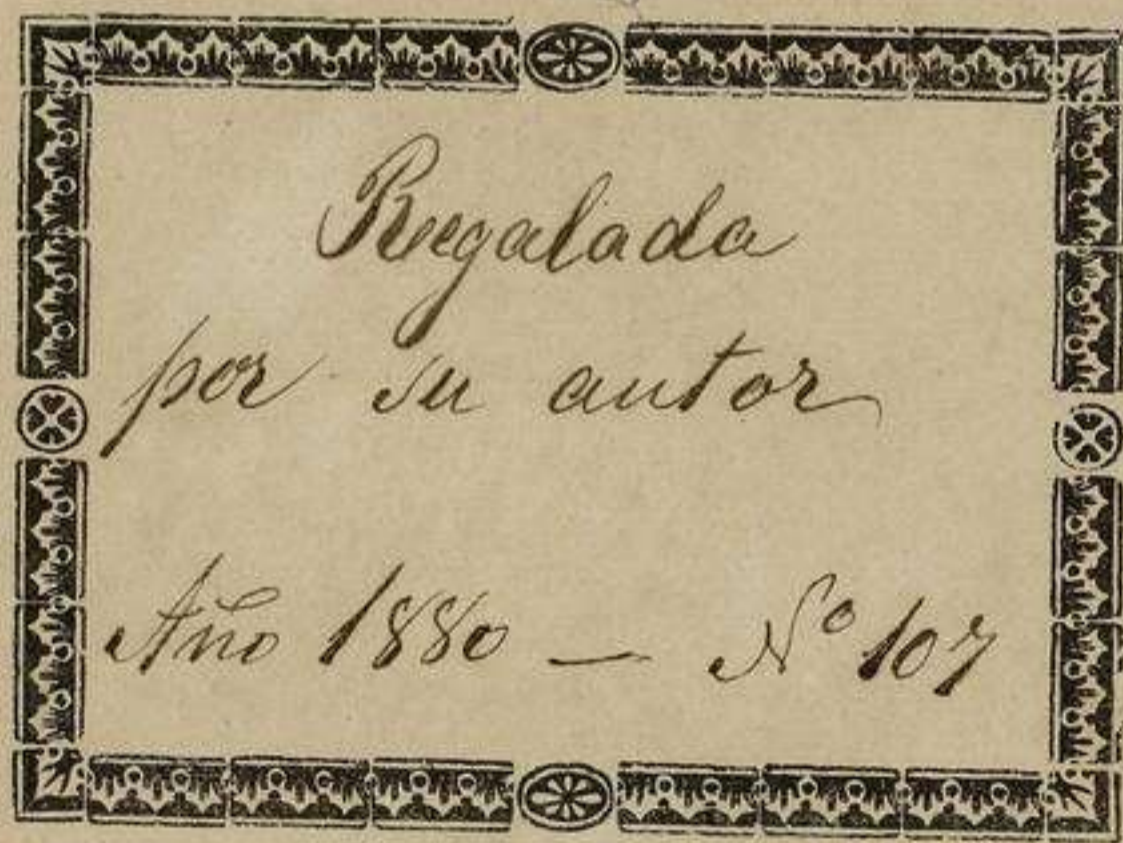 Regalada
por su autor
Año 1880 — Nº 107